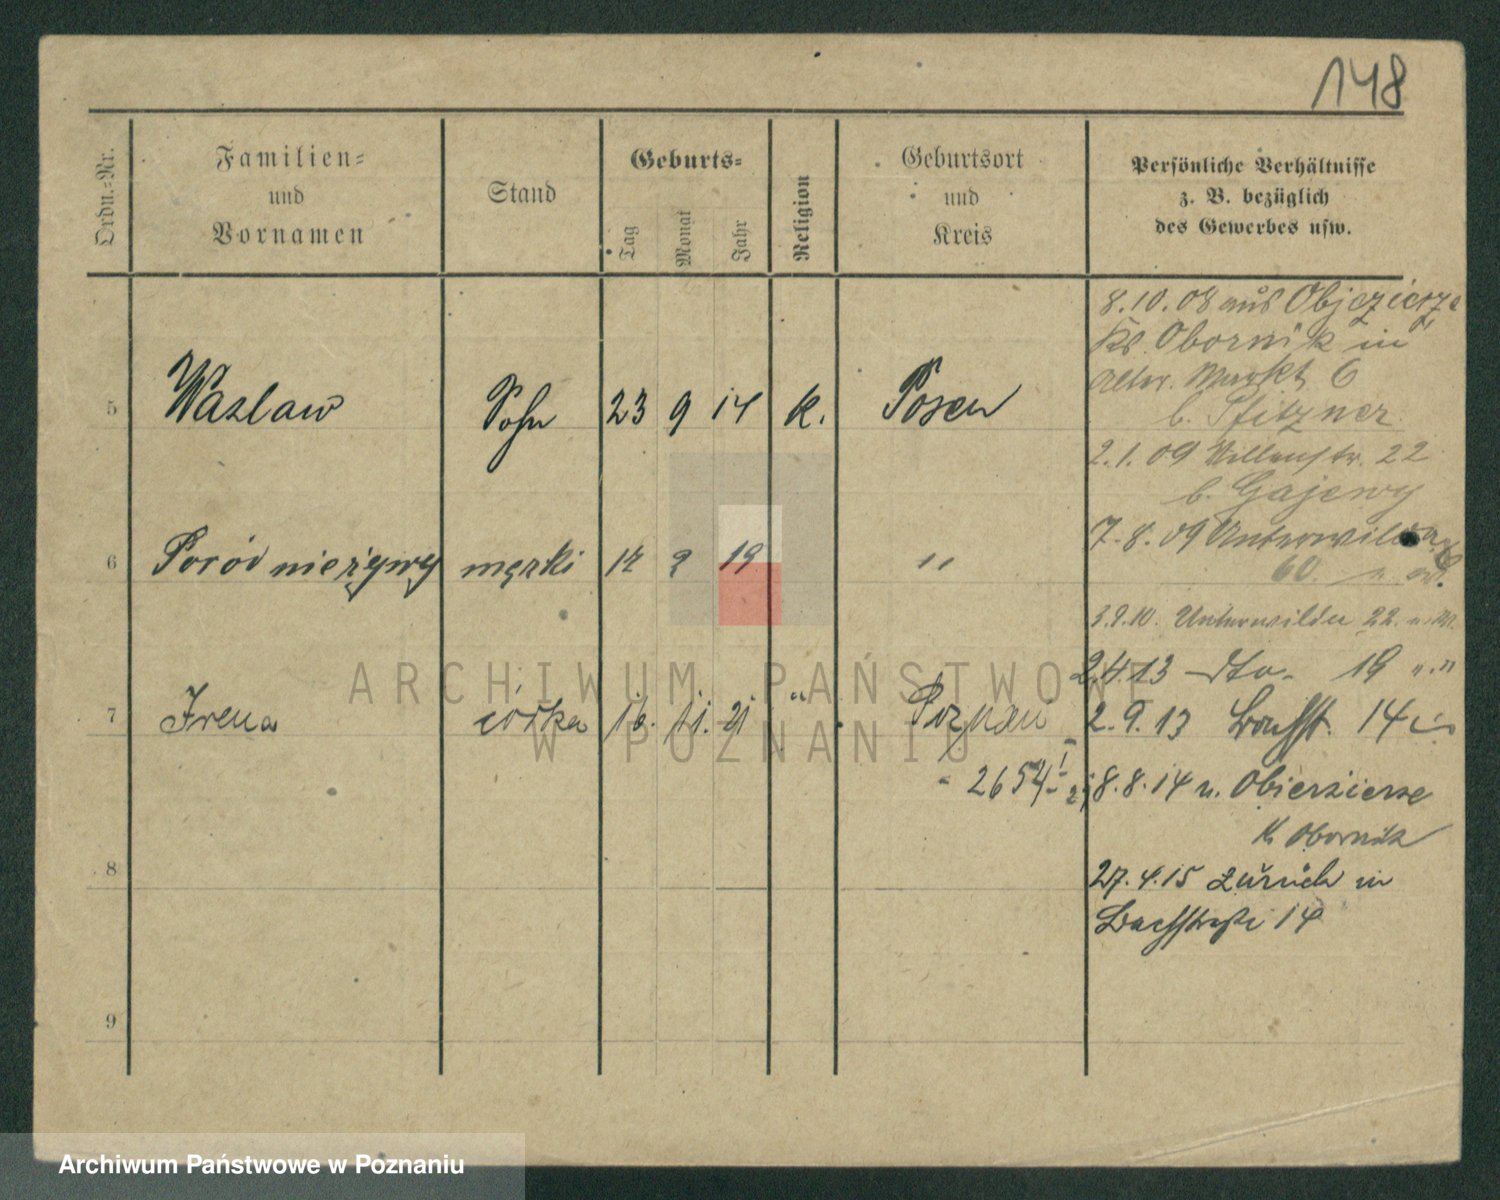 148
Ordn.-Nr.
Familien-
und
Vornamen
Stand
Geburts-
Tag
Monat
Jahr
Religion
Geburtsort
und
Kreis
Persönliche Verhältnisse
z. B. bezüglich
des Gewerbes usw.
5 Wazlaw Sohn 23 9 14 k. Posen
6 Poród nieżywy męzki 12 9 19 "
7 Irena córka 16. 11. 21 " Poznań
2654
8
9
8.10.08 aus Objezierze
Kr. Obornik in
Alter Markt 6
b. Pfitzner
2.1.09 22
b. Gajewy
7.8.09 Unterwilda
60
3.9.10. Unterwilda 22.
2.4.13 dto. 19 " "
2.9.13 Bachstr. 14
8.8.14 n. Obierzierze
Kr Obornik
27.4.15 zurück in
Bachstraße 14
ARCHIWUM PAŃSTWOWE
W POZNANIU
Archiwum Państwowe w Poznaniu